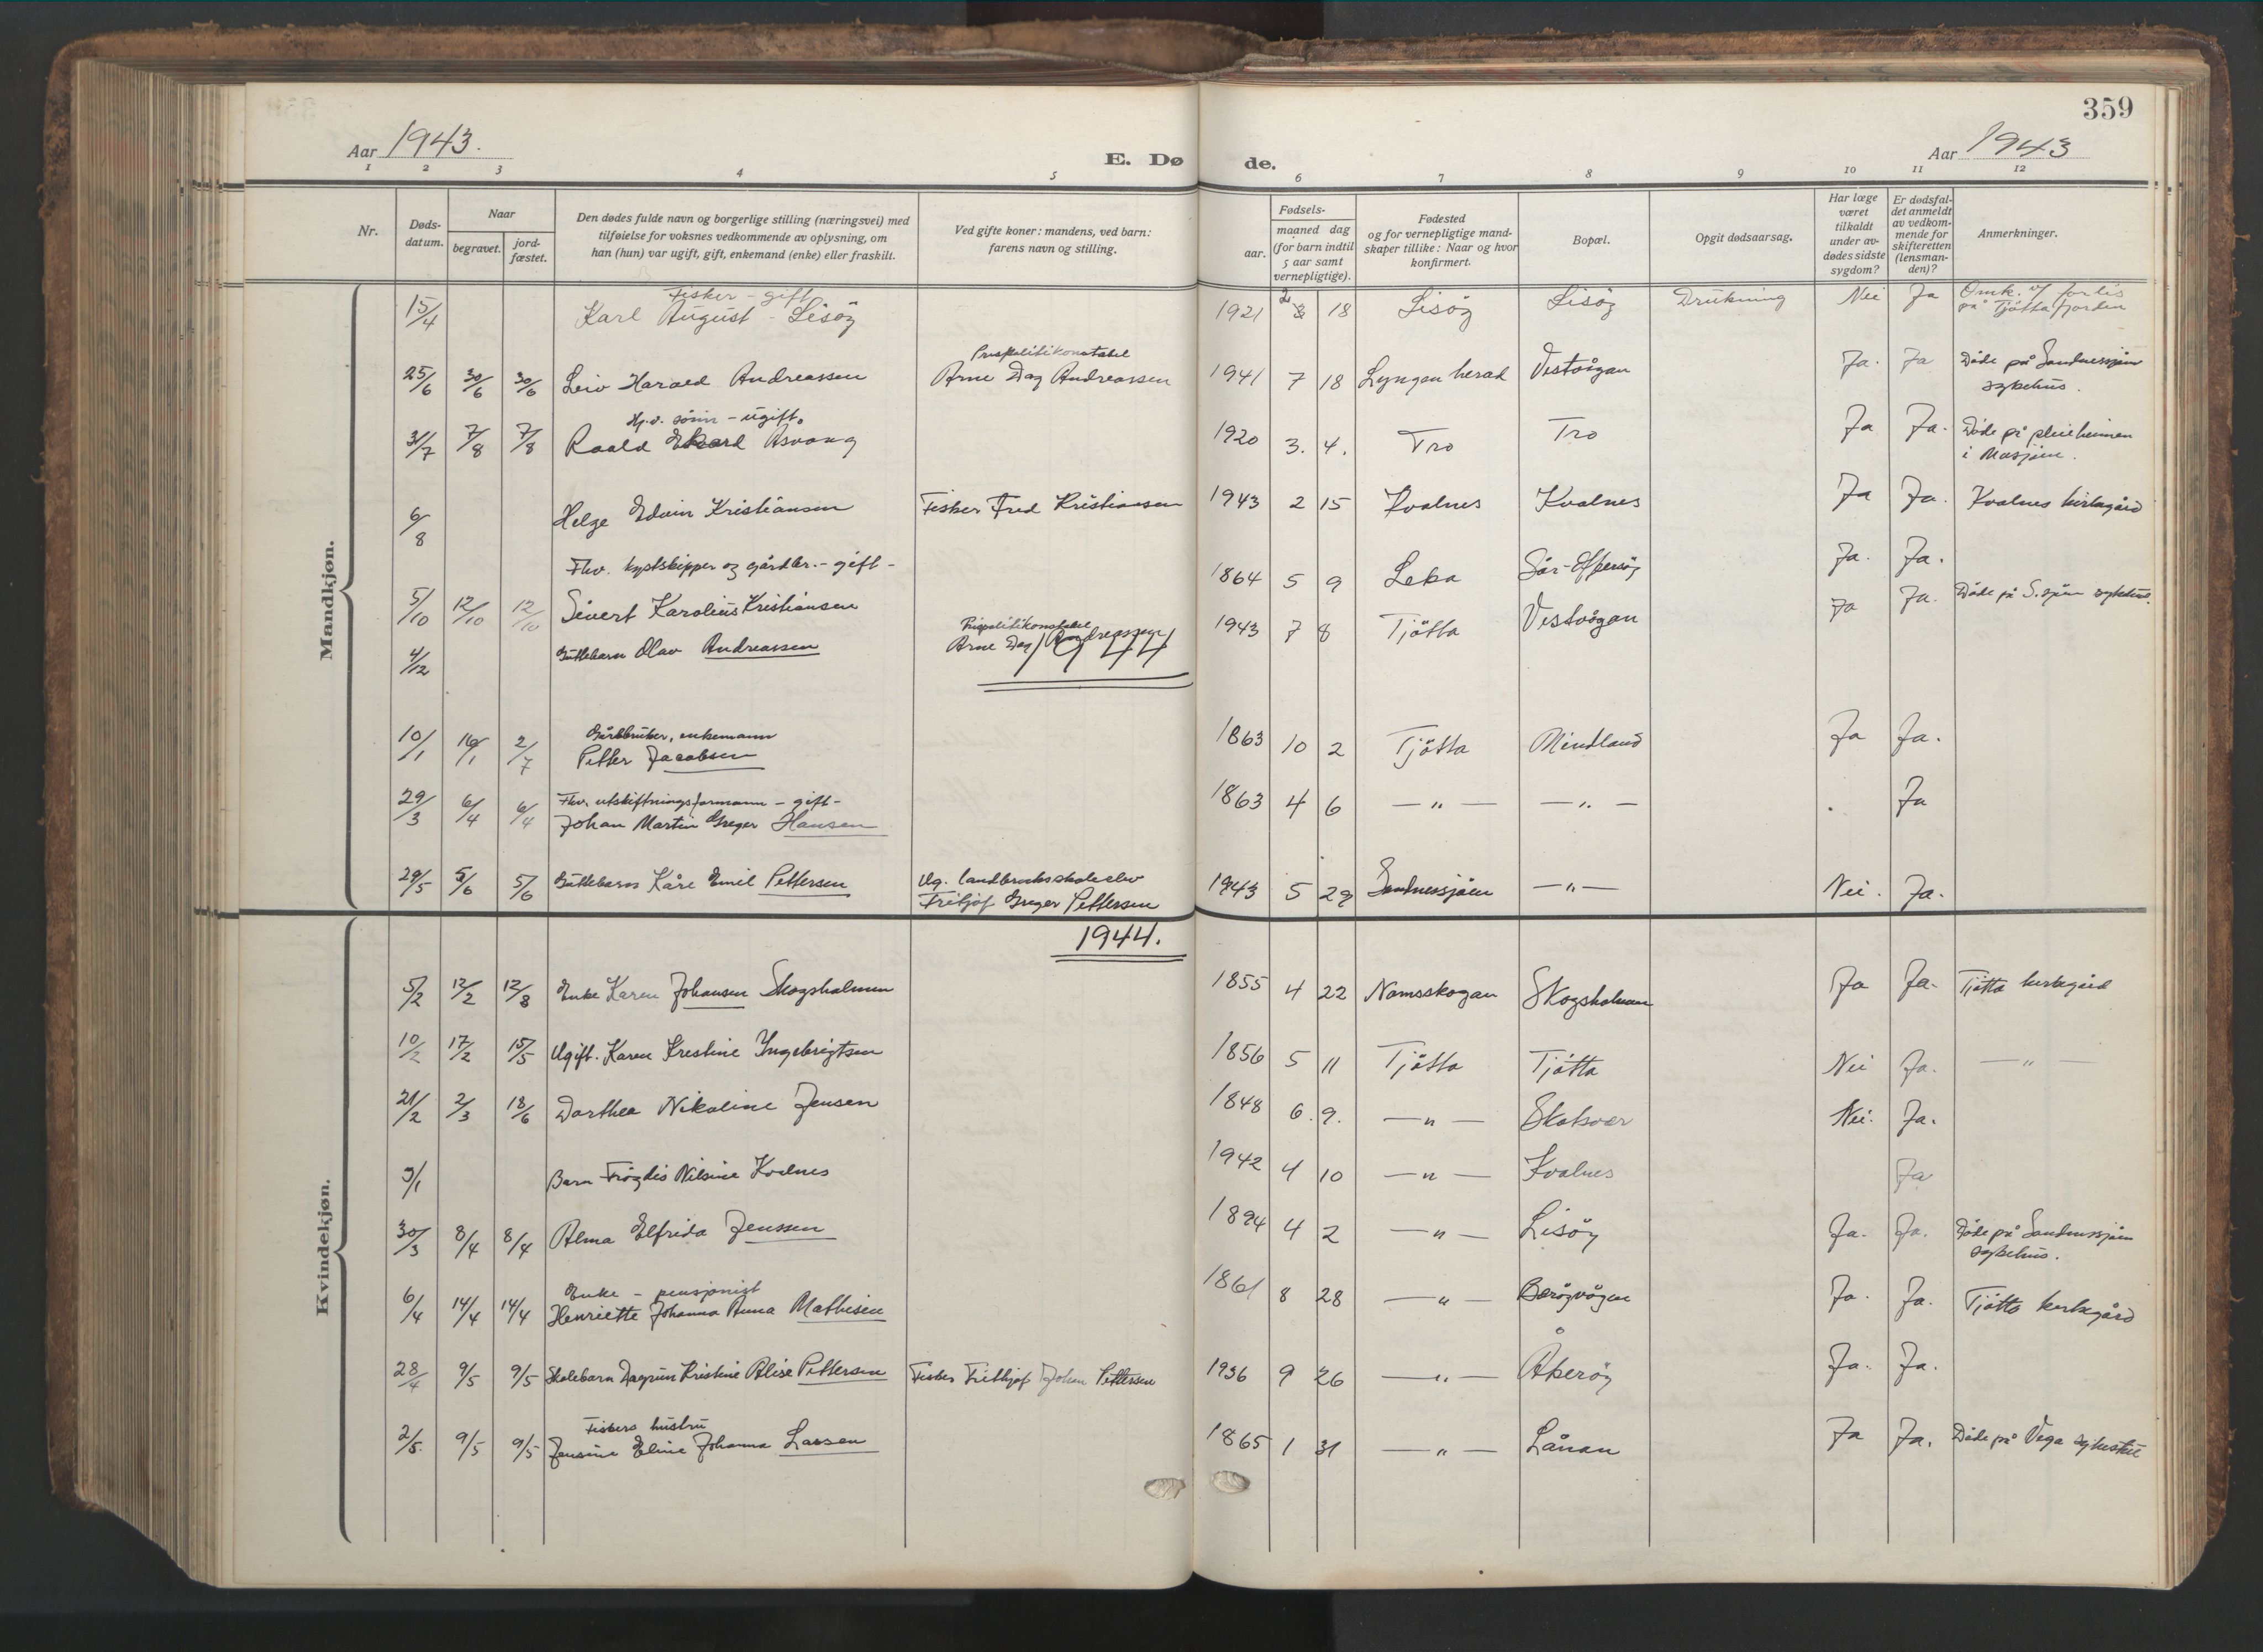 359
Aar 1943.
E. Dø
de.
Aar 1943
1 2 3 4 5 6 7 8 9 10 11 12
Nr.
Døds-
datum.
Naar
begravet.
jord-
fæstet.
Den dødes fulde navn og borgerlige stilling (næringsvei) med
tilføielse for voksnes vedkommende av oplysning, om
han (hun) var ugift, gift, enkemand (enke) eller fraskilt.
Ved gifte koner: mandens, ved barn:
farens navn og stilling.
Fødsels-
aar.
maaned dag
(for barn indtil
5 aar samt
vernepligtige).
Fødested
og for vernepligtige mand-
skaper tillike: Naar og hvor
konfirmert.
Bopæl.
Opgit dødsaarsag.
Har læge
været
tilkaldt
under av-
dødes sidste
sygdom?
Er dødsfal-
det anmeldt
av vedkom-
mende for
skifteretten
(lensman-
den)?
Anmerkninger.
Mandkjøn.
Fisker - gift
15/4 Karl August - Lisöy 1921 2 18 Lisöy Lisöy Drukning Nei Ja Omk. v/ forlis
på Tjøttafjorden
25/6 30/6 30/6 Leiv Harald Andreassen Arne Dag Andreassen 1941 7 18 Lyngen herad Vestvågan Ja. Ja Döde på Sandnessjøen
sykehus.
- ugift.
31/7 7/8 7/8 Roald Asvang 1920 3. 4. Tro Tro Ja Ja. Döde på pleieheimen
i Mosjøen.
6/8 Helge Edvin Kristiansen Fisker Fred Kristiansen 1943 2 15 Kvalnes Kvalnes Ja Ja. Kvalnes kirkegård
Fhv. kystskipper og gårdbr. - gift -
5/10 12/10 12/10 Sivert Karolius Kristiansen 1864 5 9 Leka Sör- Ja. Ja.
4/12 Guttebarn Olav Andreassen Arne Dag Andreassen 1943 7 8 Tjötta Vestvågan Ja Ja. Döde på S.sjøen sykehus.
1944
Gårdbruker, enkemann
10/1 16/1 2/7 Petter Jacobsen 1863 10 2 Tjötta Mindland Ja Ja.
Fhv. utskiftningsformann - gift -
29/3 6/4 6/4 Johan Martin Greger Hansen 1863 4 6 — " — — " — Ja
29/5 5/6 5/6 Guttebarn Kåre Emil Pettersen Ug. landbruksskoleelev 1943 5 29 Sandnessjøen — " — Nei. Ja.
Fritjof Greger Pettersen
Kvindekjøn.
1944.
5/2 12/2 12/8 Enke Karen Johansen Skogsholmen 1855 4 22 Namsskogan Skogsholmen Ja Ja. Tjøtta kirkegård
10/2 17/2 15/5 Ugift. Karen Kristine Yngebrigtsen 1856 5 11 Tjötta Tjötta Nei Ja. — " —
21/2 2/3 18/6 Dorthea Nikoline Jensen 1848 6. 9. — " — Skotsvær Nei. Ja.
Barn Frøydis Nilsine Kvalnes 1942 4 10 — " — Kvalnes Ja
30/3 8/4 8/4 Alma Elfrida Jenssen 1894 4 2 — " — Lisöy Ja. Ja. Döde på Sandnessjøen
sykehus.
Enke - pensjonist
6/4 14/4 14/4 Henriette Johanna Anna Mathisen 1861 8 28 — " — Bærøyvågen Ja. Ja. Tjøtta kirkegård
28/4 9/5 9/5 Skolebarn Dagrun Kristine Alise Pettersen Fisker Frithjof Johan Pettersen 1936 9 26 — " — Åkeröy Ja. Ja.
Fiskers hustru
2/5 9/5 9/5 Jensine Eline Johanna Lassen 1865 1 31 — " — Lånan Ja Ja. Döde på Vega sykestue